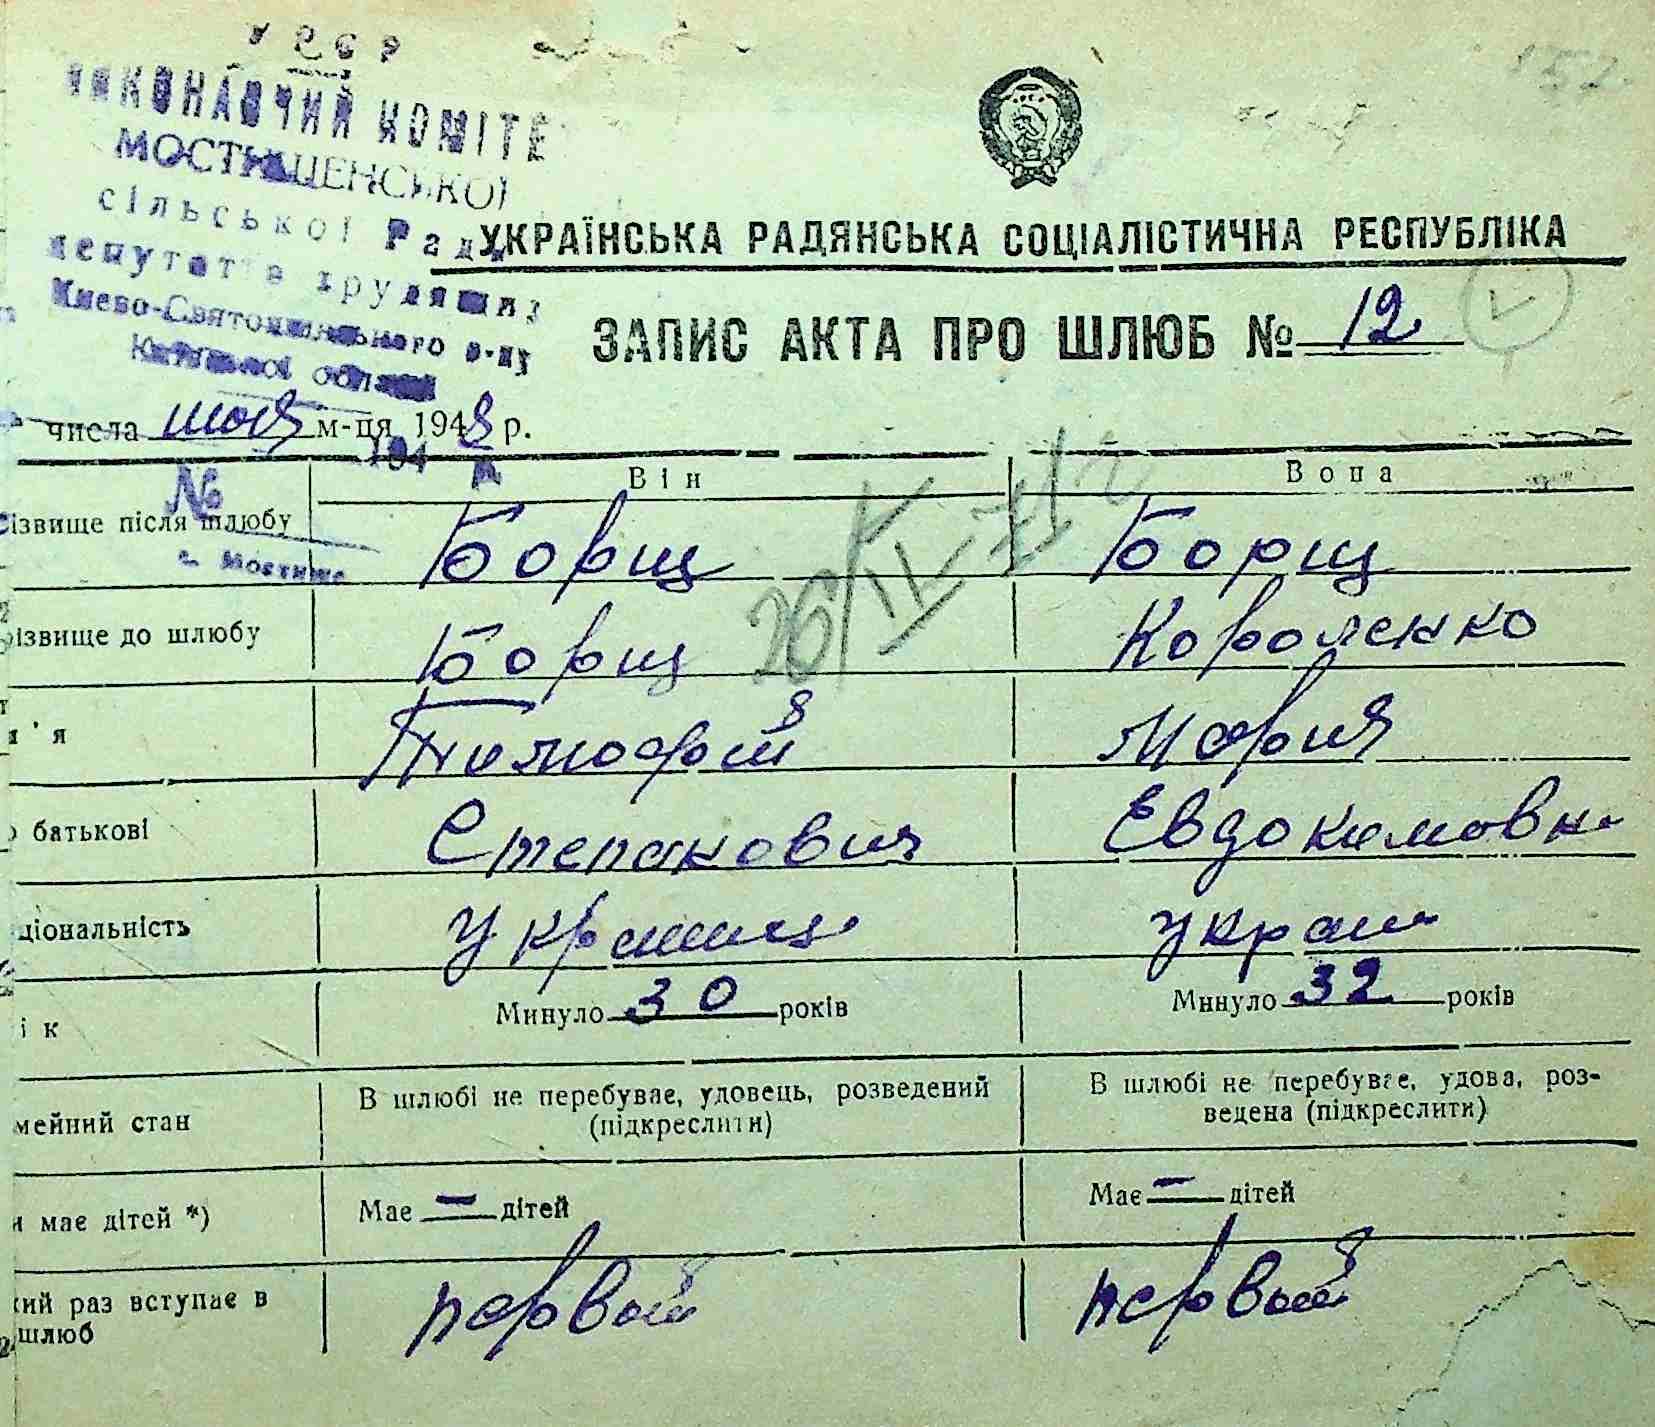 УРСР
ВИКОНАВЧИЙ КОМІТЕ
МОСТИЩЕНСЬКОЇ
сільської Ради
депутатів трудящих
Києво-Святошинського р-ну
Київської області
194
№
с. Мостище
УКРАЇНСЬКА РАДЯНСЬКА СОЦІАЛІСТИЧНА РЕСПУБЛІКА
ЗАПИС АКТА ПРО ШЛЮБ № 12
числа мая м-ця 1948 р.
Він Вона
різвище після шлюбу Борщ Борщ
різвище до шлюбу Борщ Короленко
26/IV-71 г
м'я Тимофей Мария
о батькові Степанович Евдокимовн
ціональність Украинц украин
і к Минуло 30 років Минуло 32 років
мейний стан В шлюбі не перебуває, удовець, розведений (підкреслити) В шлюбі не перебуває, удова, роз-
ведена (підкреслити)
и має дітей *) Має — дітей Має — дітей
кий раз вступає в шлюб первый первый